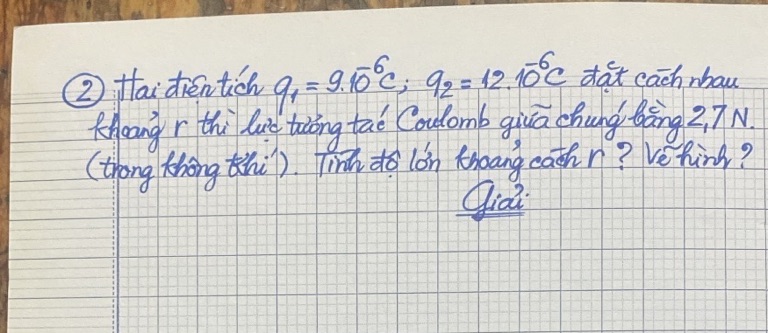 ② Hai điện tích q₁ = 9.10⁻⁶C; q₂ = 12.10⁻⁶C đặt cách nhau
khoảng r thì lực tương tác Coulomb giữa chúng bằng 2,7 N.
(trong không khí). Tính độ lớn khoảng cách r? Vẽ hình?
Giải: